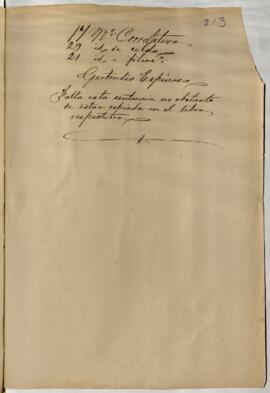 213
17 Nº Correlativo
29 id. de celda
21 id. " filiaⁿ
Gertrudis Espinosa
Falta esta sentencia no obstante
de estar copiada en el libro
respectivo